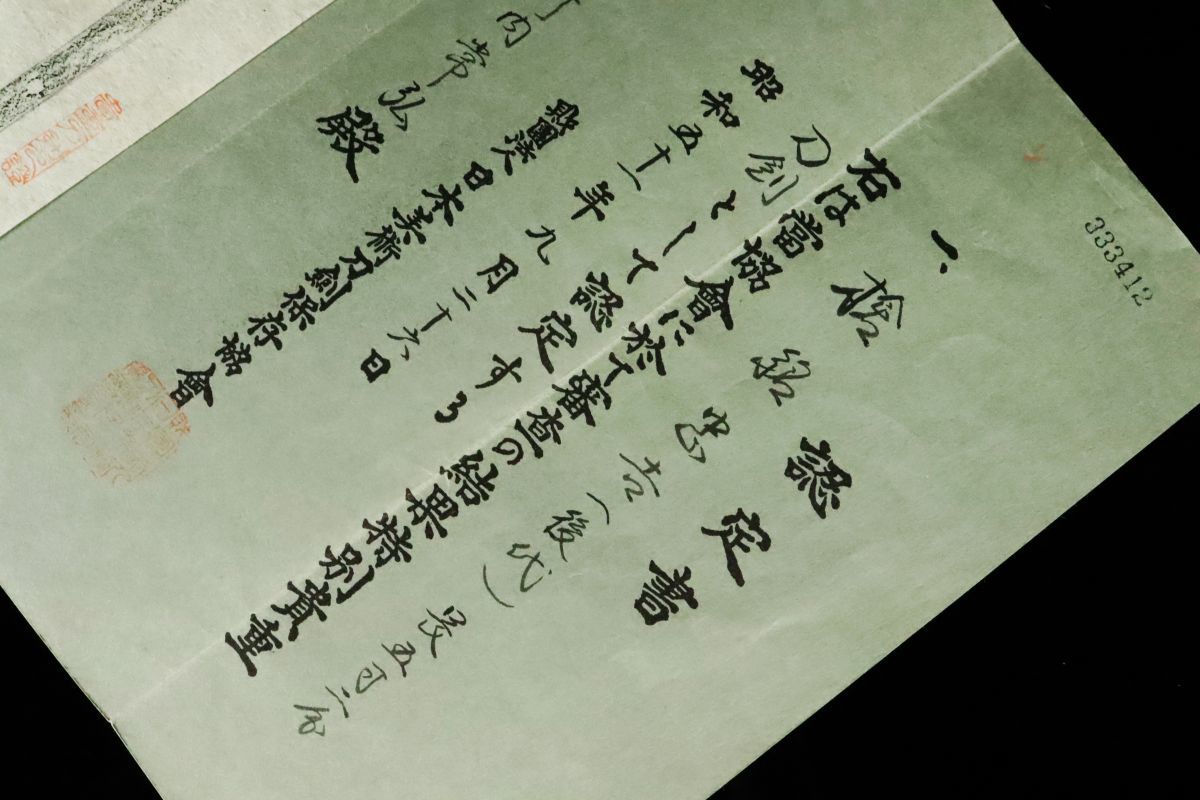 333412
認定書
一、槍 銘 忠吉(後代) 長五寸二分
右は當協會に於て審査の結果特別貴重
刀剣として認定する
昭和五十一年九月二十六日
財團法人 日本美術刀劍保存協會
内常弘殿